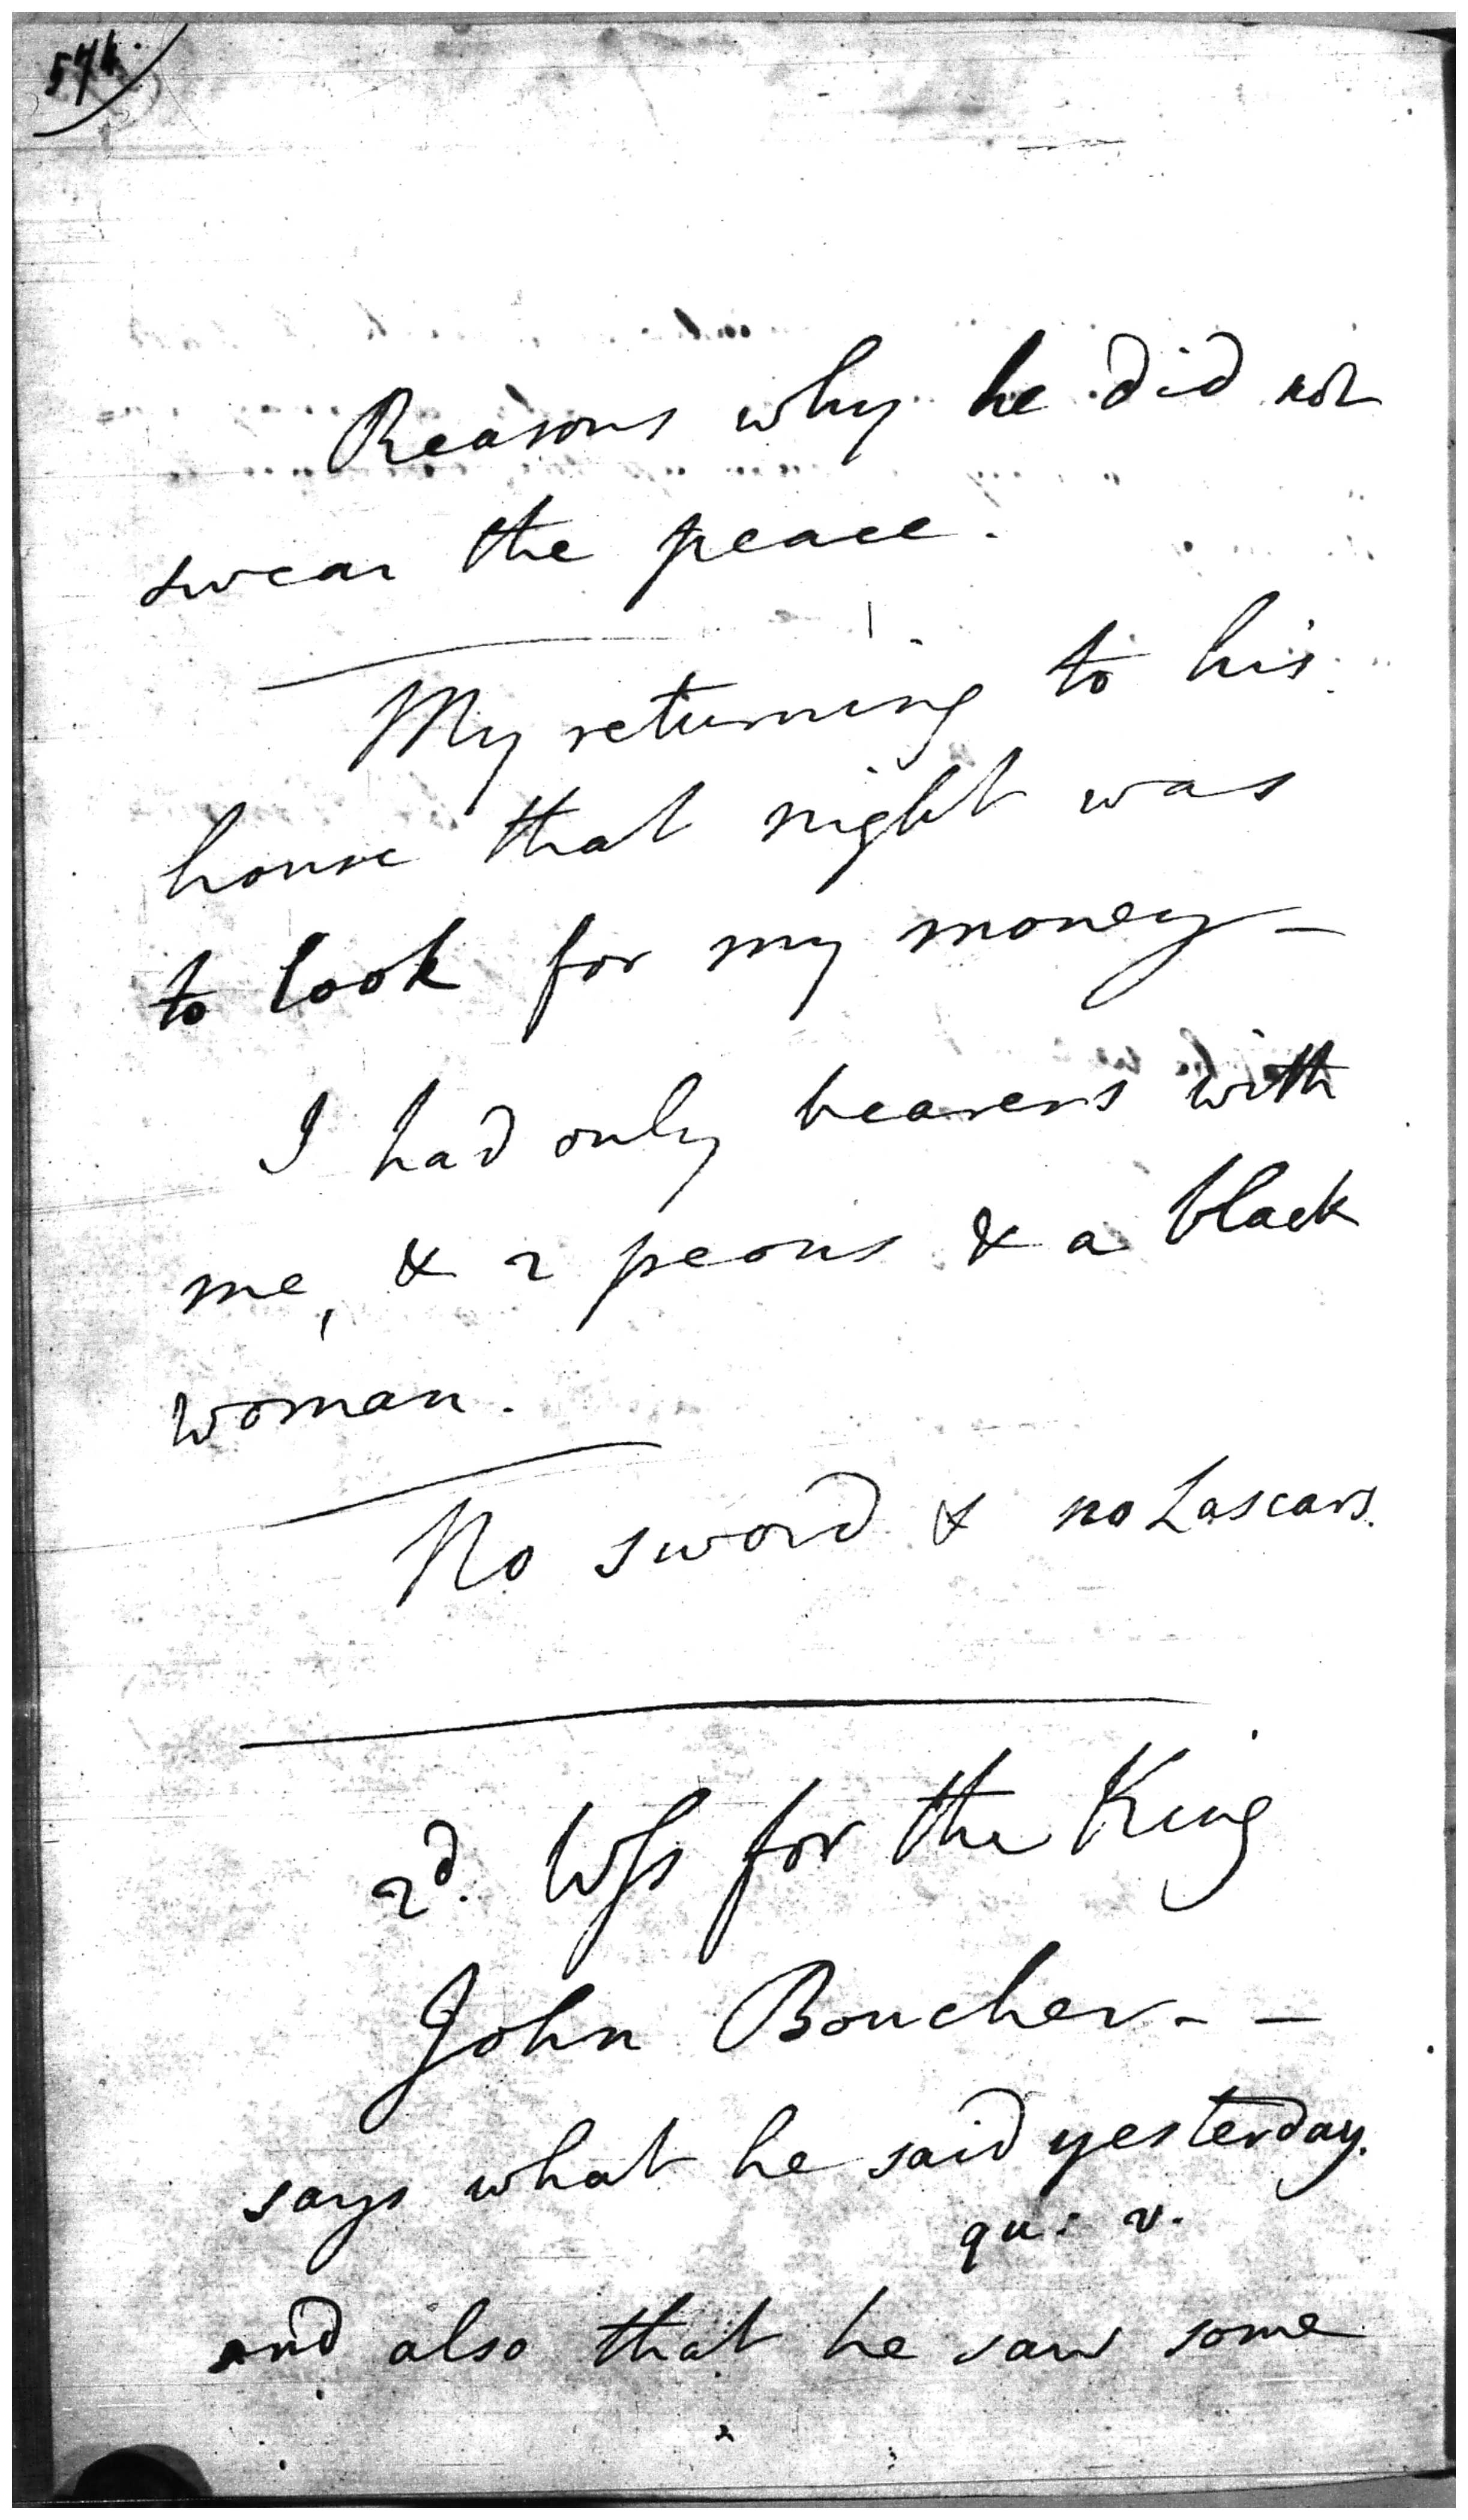 574.
Reasons why he did not
swear the peace.
My returning to his
house that night was
to look for my money –
I had only bearers with
me, & 2 peons & a black
woman.
No sword & no Lascars.
2d. Wss for the King
John Boucher – –
says what he said yesterday.
qu: v.
and also that he saw some